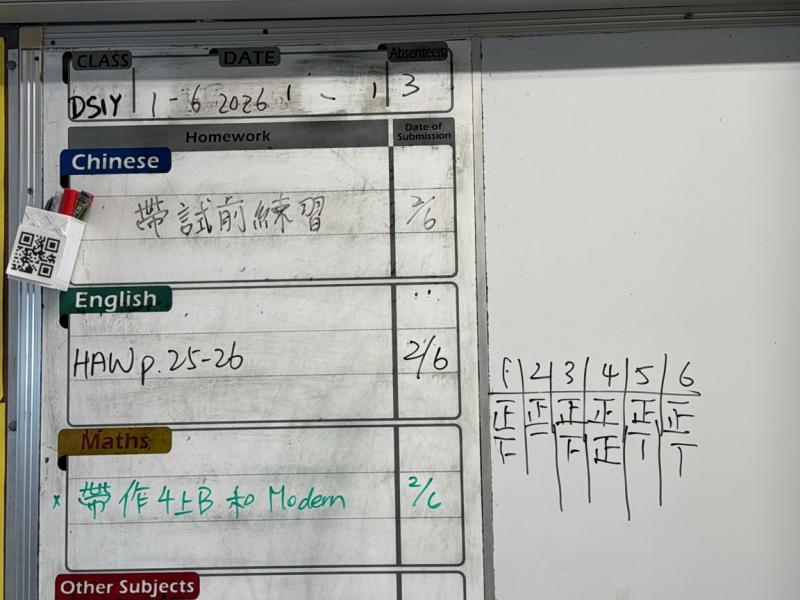 CLASS DATE Absentee(s)
1 - 6 2026 3
Homework Date of Submission
Chinese
帶試前練習 2/6
English
HAW p. 25-26 2/6
Maths
x 帶作4上B和Modern 2/6
Other Subjects
1 2 3 4 5 6
正 正 正 正 正 正
正